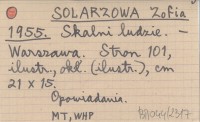 SOLARZOWA Zofia
1955. Skalni ludzie. -
Warszawa. Stron 101,
ilustr., okł. (ilustr.), cm
21 x 15.
Opowiadania.
MT, WHP